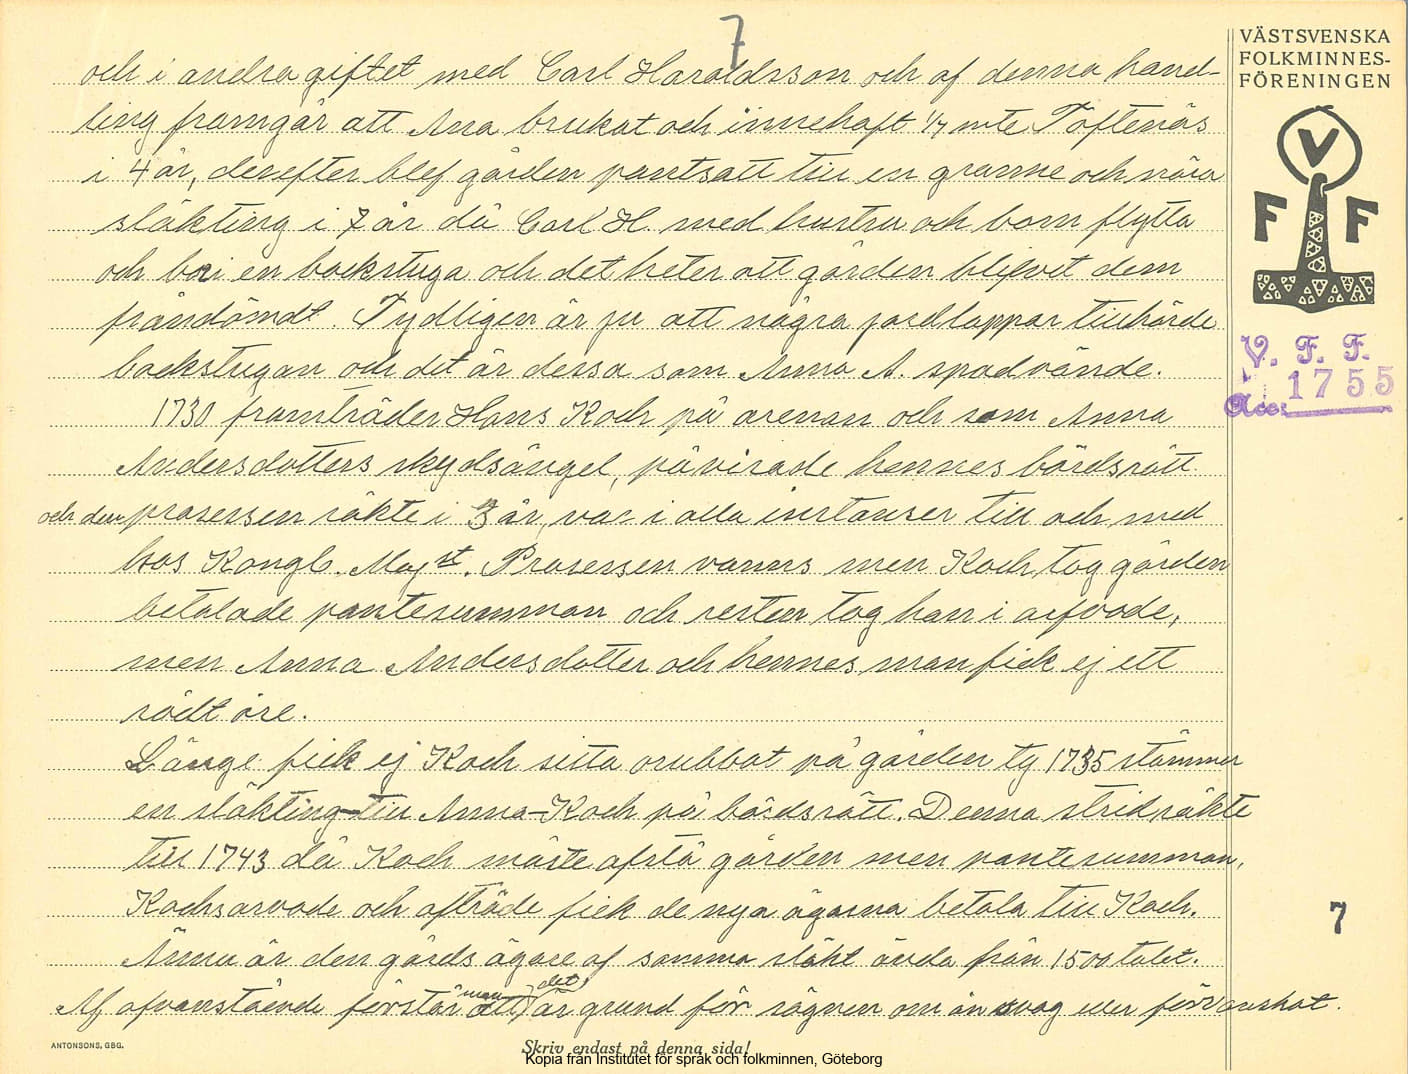 7
VÄSTSVENSKA
FOLKMINNES-
FÖRENINGEN
V
F F
V. F. F.
Acc: 1755
och i andra giftet med Carl Haraldsson och af denna hand-
ling framgår att Ana brukat och innehaft 1/7 mte Toftenäs
i 4 år, derefter blef gården pantsatt till en granne och nära
släkting i 7 år då Carl H. med hustru och barn flytta
och bo i en backstuga och det heter att gården blifvet dem
fråndömdt. Tydligen är ju att några jordlappar tillhörde
backstugan och det är dessa som Anna A. spadvände.
1730 framträder Hans Koch på arenan och som Anna
Andersdotters skydsängel, påvisade hennes bördsrätt
och den prosessen räkte i 3 år, var i alla instanser till och med
hos Kongl. Maj st. Prosessen vanns men Koch tog gården
betalade pantesumman och resten tog han i arfvode,
men Anna Andersdotter och hennes man fick ej ett
rödt öre.
Länge fick ej Koch sitta orubbat på gården ty 1735 stämmer
en släkting till Anna Koch på bördsrätt. Denna strid räkte
till 1743 då Koch måste afstå gården men pantesumman,
Kochs arvode och afträde fick de nya ägarna betala till Koch.
Ännu är den gårds ägare af samma släkt ända från 1500 talet.
Af ofvanstående förstår man att det är grund för sägnen om än svag eller förvanskat.
7
ANTONSONS, GBG.
Skriv endast på denna sida!
Kopia från Institutet för språk och folkminnen, Göteborg